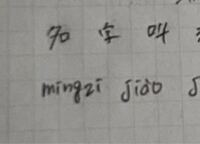 名 字 叫
mingzi jiào